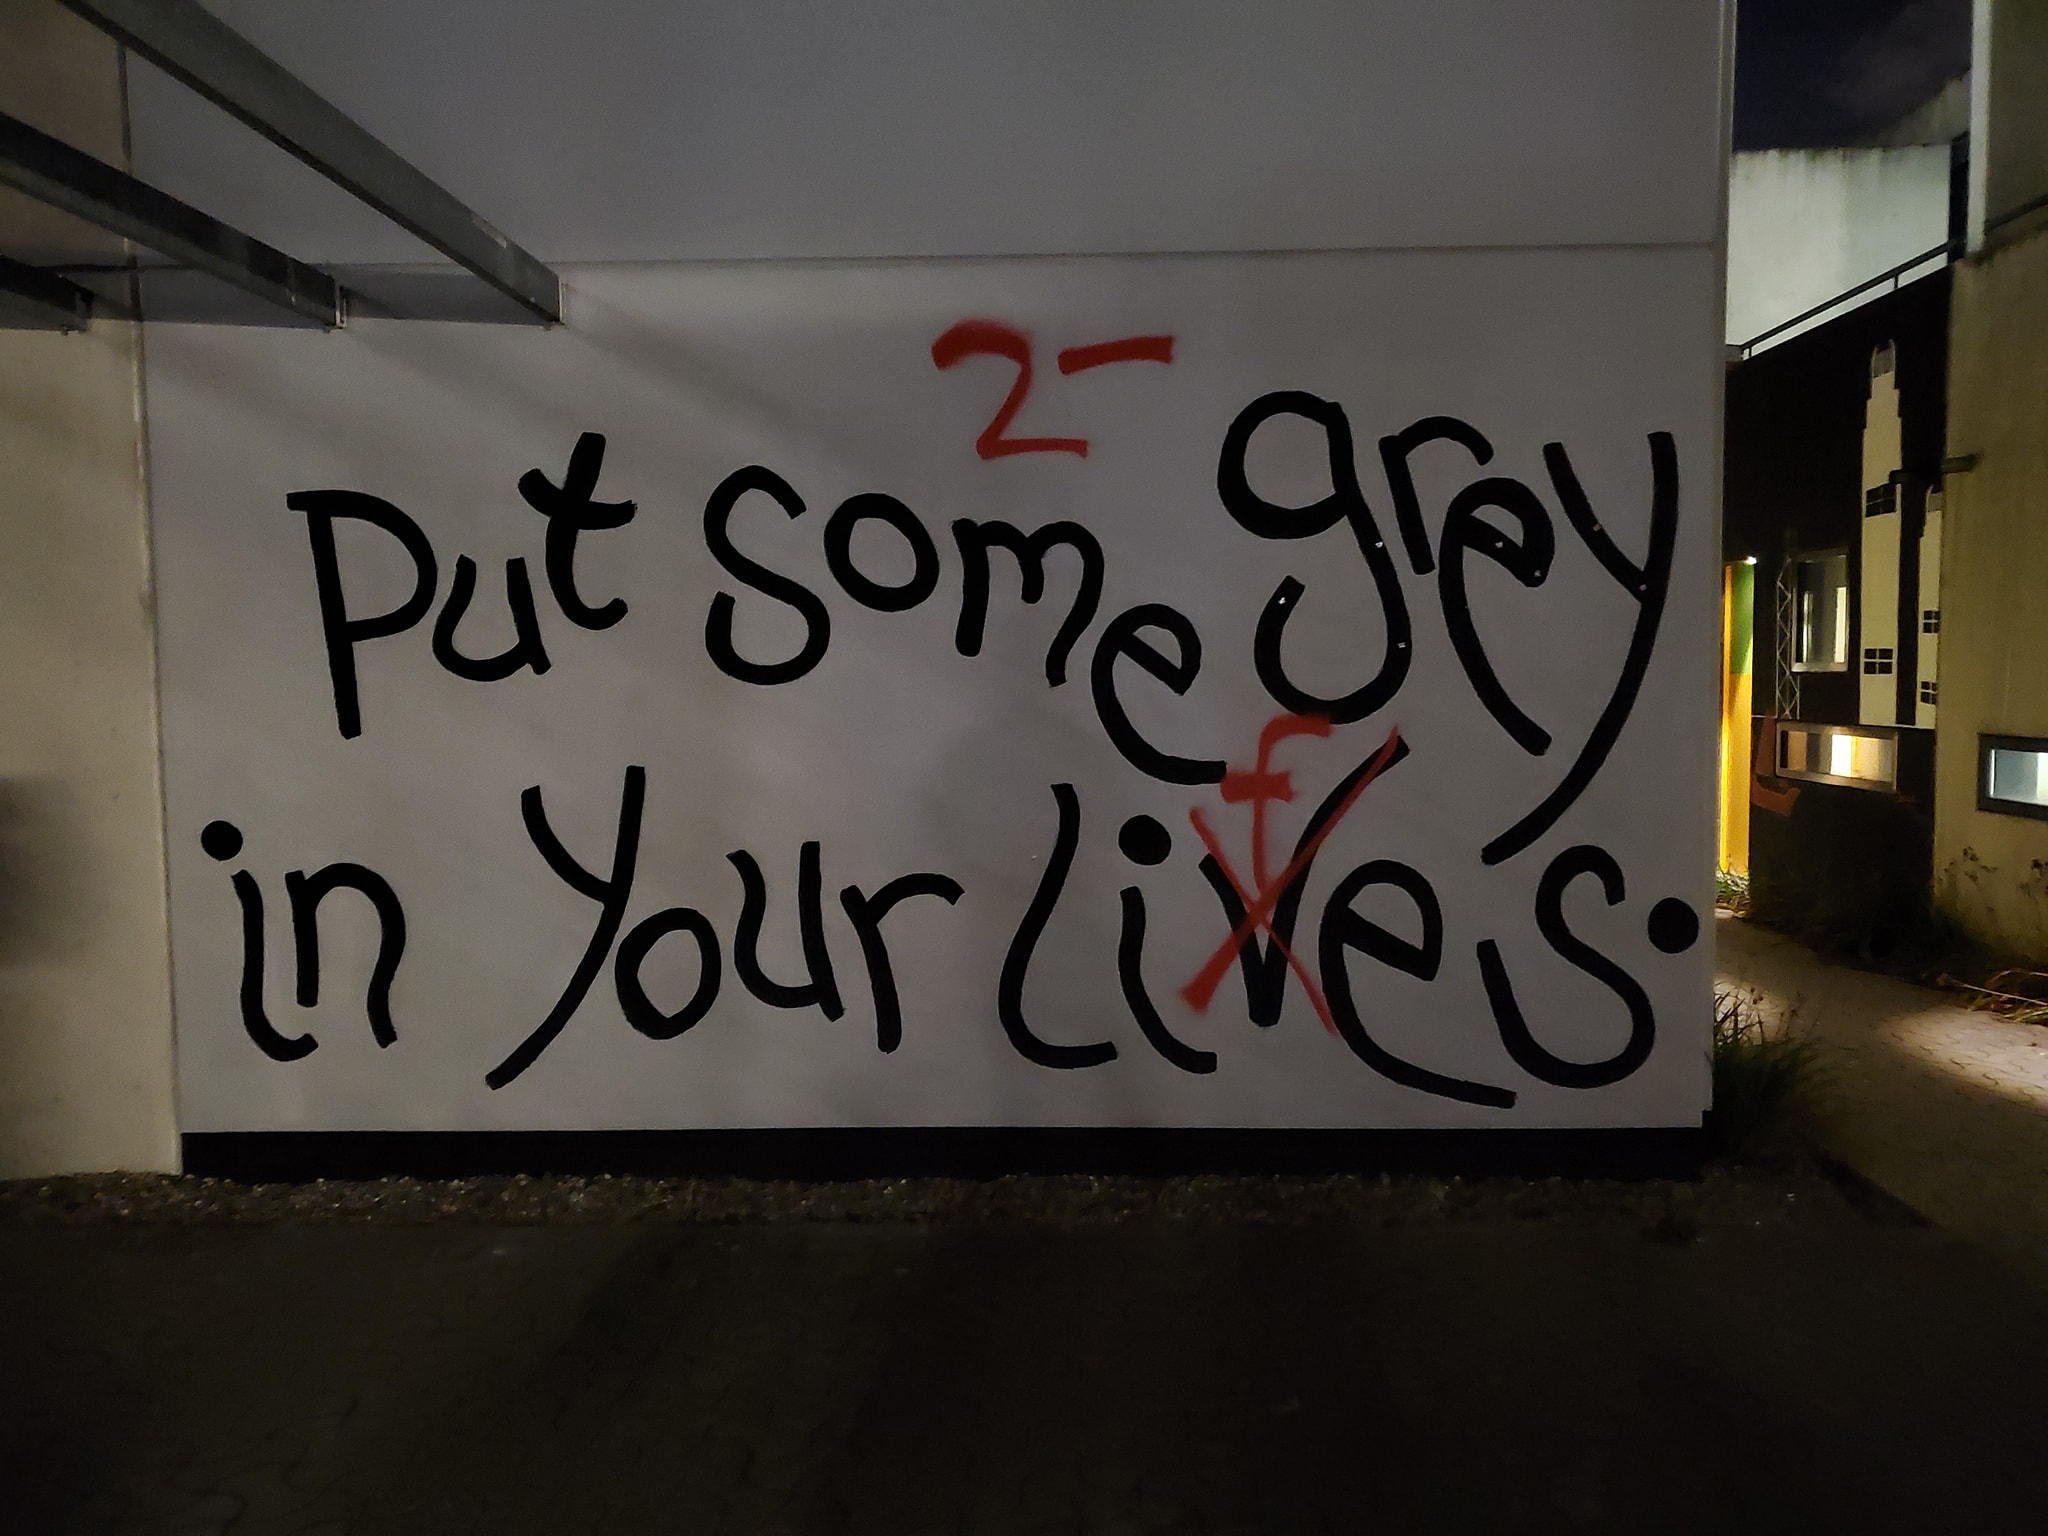 2-
Put some grey
f
in your lives.